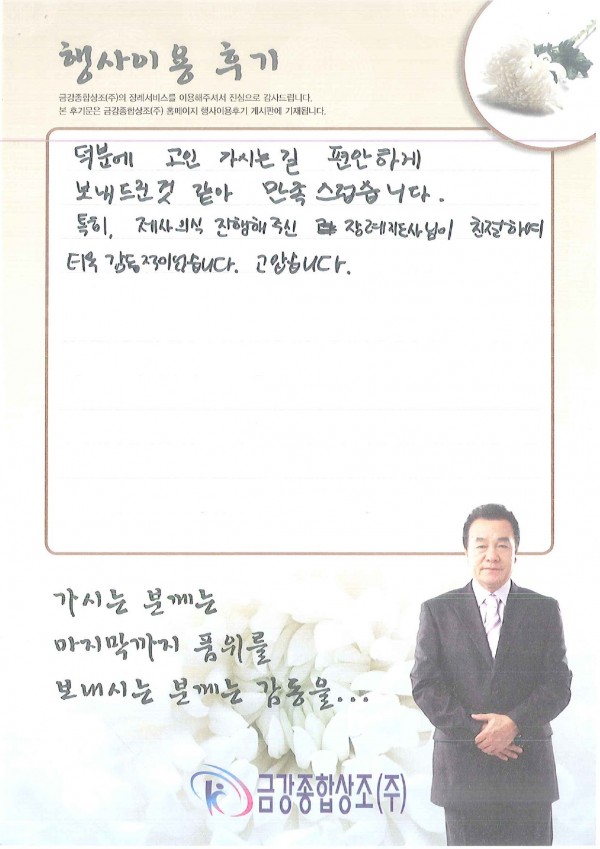 행사이용 후기
금강종합상조(주)의 장례서비스를 이용해주셔서 진심으로 감사드립니다.
본 후기문은 금강종합상조(주) 홈페이지 행사이용후기 게시판에 기재됩니다.
덕분에 고인 가시는길 편안하게
보내드린것 같아 만족스럽습니다.
특히, 제사의식 진행해주신 장례지도사님이 친절하여
더욱 감동적이었습니다. 고맙습니다.
가시는 분께는
마지막까지 품위를
보내시는 분께는 감동을...
금강종합상조(주)